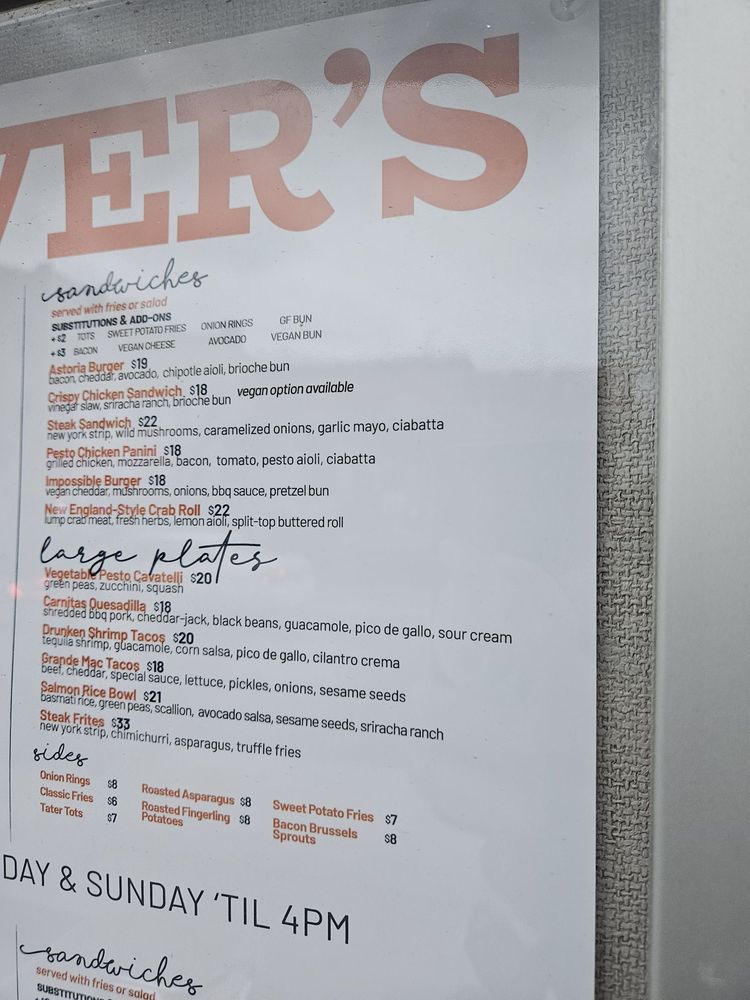 VER'S
sandwiches
served with fries or salad
SUBSTITUTIONS & ADD-ONS
+$2 TOTS SWEET POTATO FRIES ONION RINGS GF BUN
+$3 BACON VEGAN CHEESE AVOCADO VEGAN BUN
Astoria Burger $19
bacon, cheddar, avocado, chipotle aioli, brioche bun
Crispy Chicken Sandwich $18 vegan option available
vinegar slaw, sriracha ranch, brioche bun
Steak Sandwich $22
new york strip, wild mushrooms, caramelized onions, garlic mayo, ciabatta
Pesto Chicken Panini $18
grilled chicken, mozzarella, bacon, tomato, pesto aioli, ciabatta
Impossible Burger $18
vegan cheddar, mushrooms, onions, bbq sauce, pretzel bun
New England-Style Crab Roll $22
lump crab meat, fresh herbs, lemon aioli, split-top buttered roll
large plates
Vegetable Pesto Cavatelli $20
green peas, zucchini, squash
Carnitas Quesadilla $18
shredded bbq pork, cheddar-jack, black beans, guacamole, pico de gallo, sour cream
Drunken Shrimp Tacos $20
tequila shrimp, guacamole, corn salsa, pico de gallo, cilantro crema
Grande Mac Tacos $18
beef, cheddar, special sauce, lettuce, pickles, onions, sesame seeds
Salmon Rice Bowl $21
basmati rice, green peas, scallion, avocado salsa, sesame seeds, sriracha ranch
Steak Frites $33
new york strip, chimichurri, asparagus, truffle fries
sides
Onion Rings $8
Classic Fries $6
Tater Tots $7
Roasted Asparagus $8
Roasted Fingerling $8
Potatoes
Sweet Potato Fries $7
Bacon Brussels $8
Sprouts
DAY & SUNDAY 'TIL 4PM
sandwiches
served with fries or salad
SUBSTITUTIONS